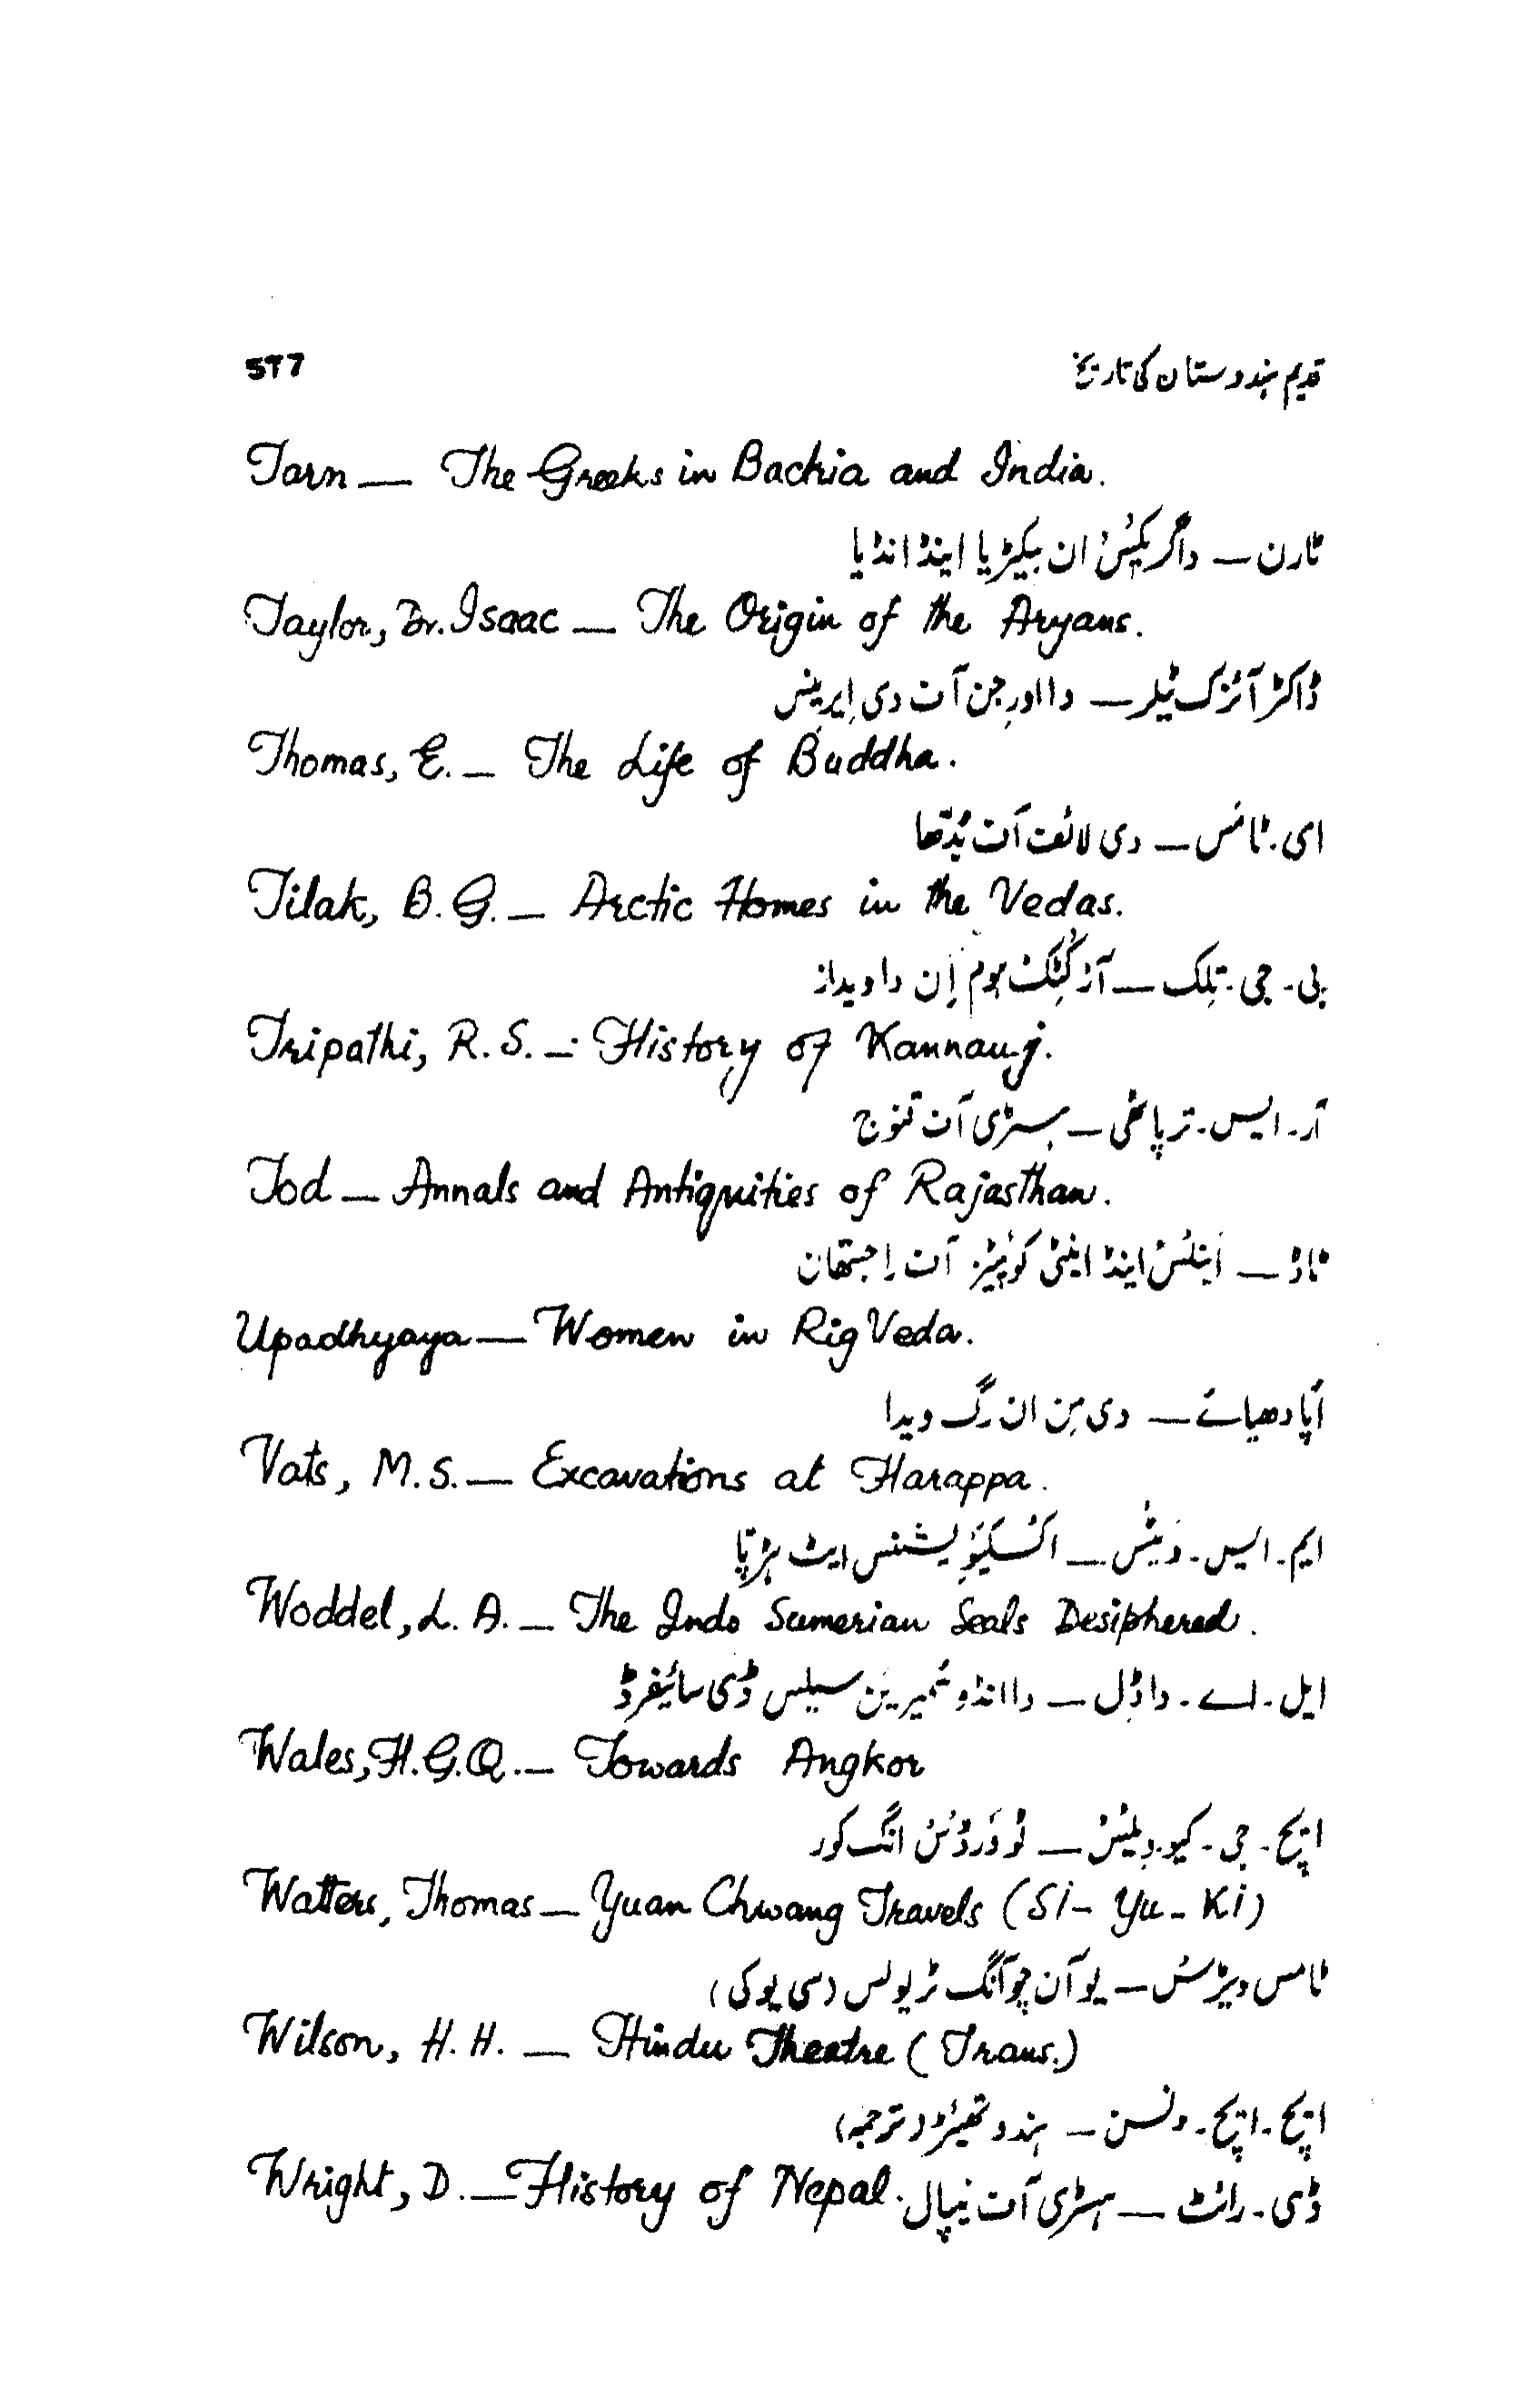 قدیم ہندوستان کی تاریخ 577
Tarn — The Greeks in Bactria and India.
ٹارن — داگریکس ان بیکٹریا اینڈ انڈیا
Taylor, Dr. Isaac — The Origin of the Aryans.
ڈاکٹر آئزک ٹیلر — دا اورجن آف دی ایرینس
Thomas, E. — The Life of Buddha.
ای۔ ٹامس — دی لائف آف بُدّھا
Tilak, B. G. — Arctic Homes in the Vedas.
بی۔ جی۔ تِلک — آرکٹِک ہوم اِن دا ویداز
Tripathi, R. S. — History of Kannauj.
آر۔ ایس۔ ترپاٹھی — ہسٹری آف قنوج
Tod — Annals and Antiquities of Rajasthan.
ٹاڈ — اینلس اینڈ اینٹی کوئٹیز آف راجستھان
Upadhyaya — Women in Rig Veda.
اُپادھیائے — وی مِن ان رگ ویدا
Vats, M. S. — Excavations at Harappa.
ایم۔ ایس۔ ویٹس — اکسکیویشنس ایٹ ہڑپّا
Woddel, L. A. — The Indo Sumerian Seals Desiphered.
ایل۔ اے۔ واڈل — دا انڈو سُمیرین سیلس ڈی سائیفرڈ
Wales, H. G. Q. — Towards Angkor
ایچ۔ جی۔ کیو۔ ویلس — ٹووَرڈس انگ کور
Watters, Thomas — Yuan Chwang Travels (Si - Yu - Ki)
ٹامس ویٹرس — یوآن چوآنگ ٹریولس (سی یو کی)
Wilson, H. H. — Hindu Theatre (Trans.)
ایچ۔ ایچ۔ ولسن — ہندو تھیٹر (ترجمہ)
Wright, D. — History of Nepal. ڈی۔ رائٹ — ہسٹری آف نیپال